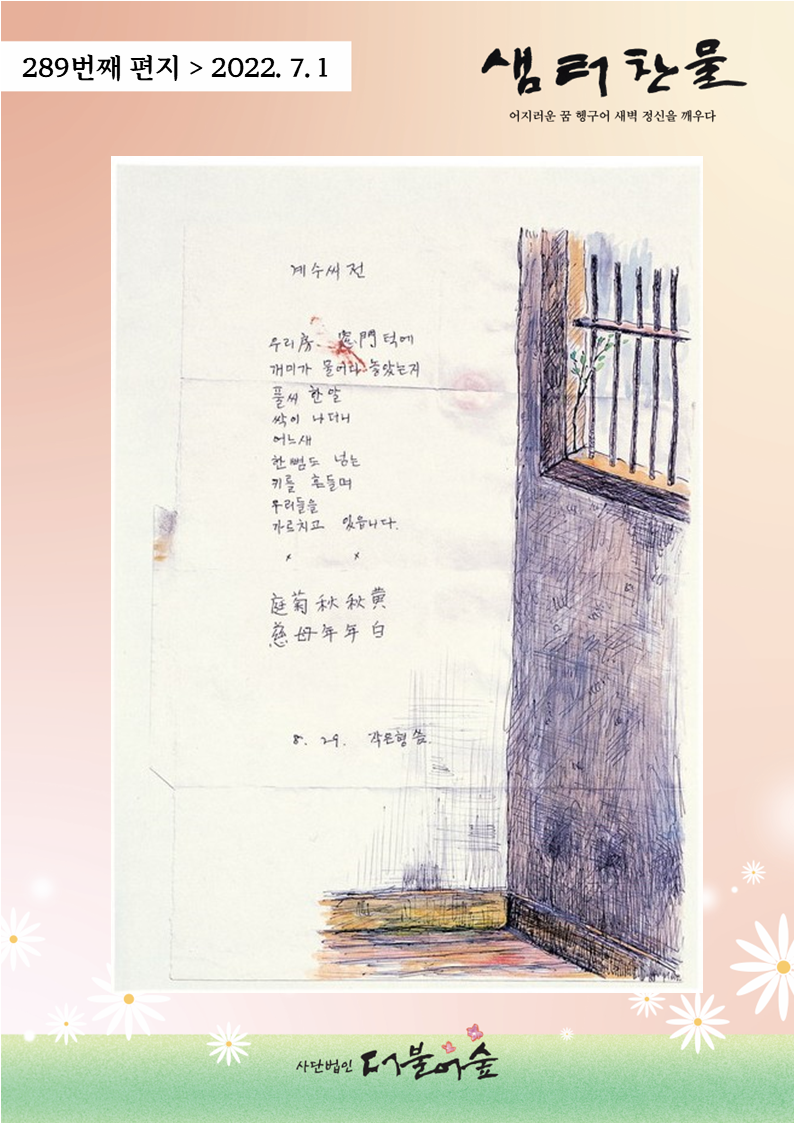 289번째 편지 > 2022. 7. 1
샘터찬물
어지러운 꿈 헹구어 새벽 정신을 깨우다
계수씨 전
우리房 窓門턱에
개미가 물어다 놓았는지
풀씨 한알
싹이 나더니
어느새
한뼘도 넘는
키를 흔들며
우리들을
가르치고 있읍니다.
× ×
庭菊秋秋黄
慈母年年白
8. 29. 작은형 씀.
사단법인 더불어숲